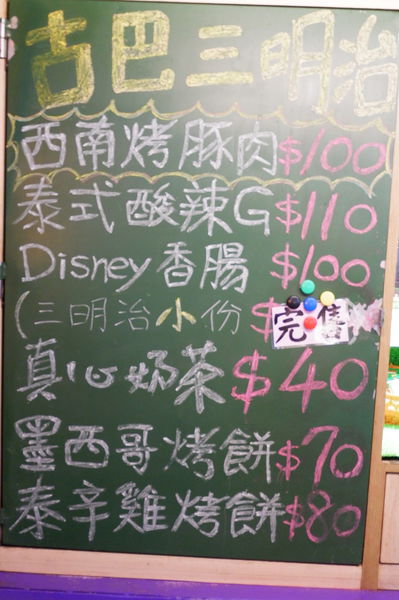 古巴三明治
西南烤豚肉$100
泰式酸辣G$110
Disney香腸$100
(三明治小份$完售
真心奶茶$40
墨西哥烤餅$70
泰辛雞烤餅$80